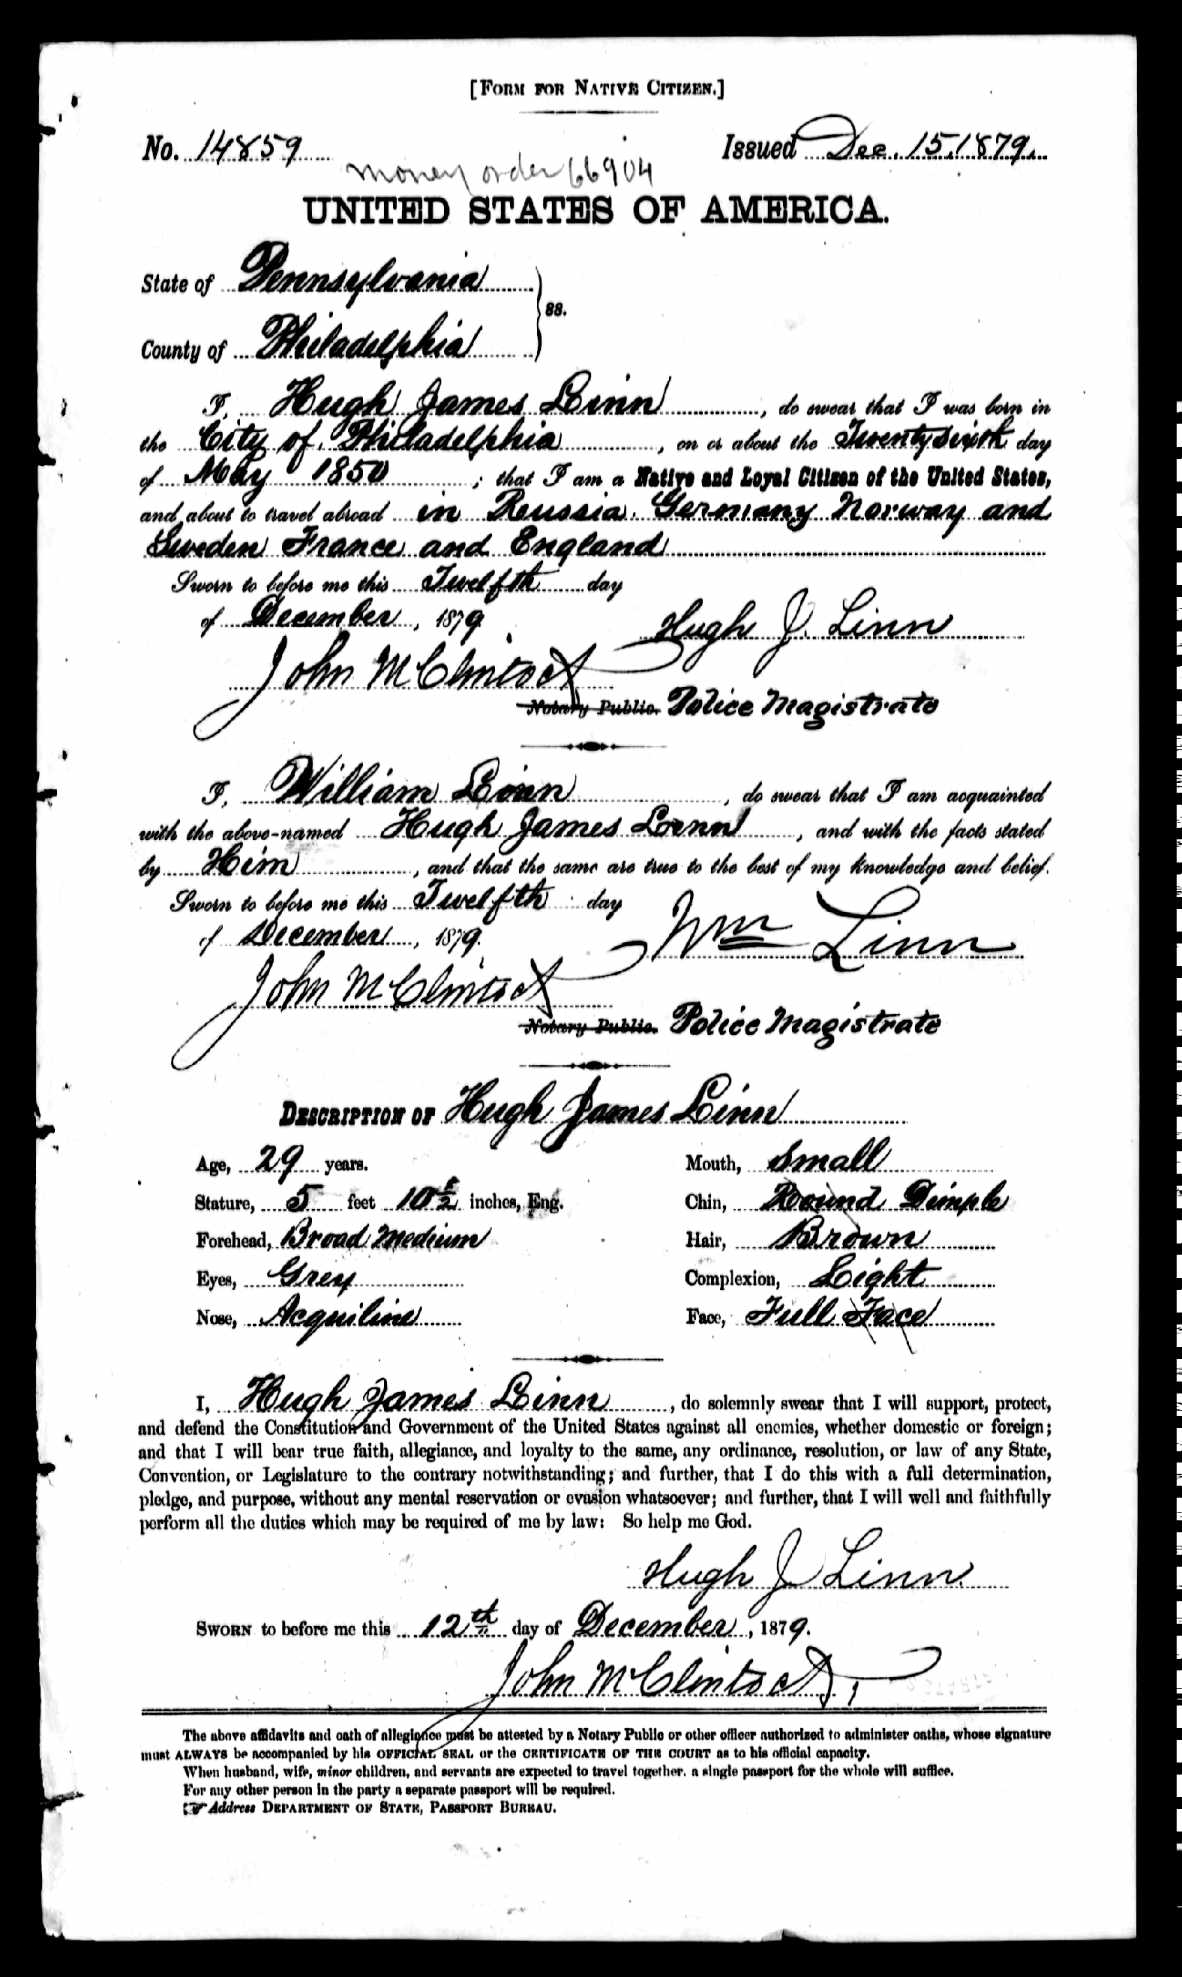 [FORM FOR NATIVE CITIZEN.]
No. 14859 Issued Dec. 15, 1879.
money order 66904
UNITED STATES OF AMERICA.
State of Pennsylvania
ss.
County of Philadelphia
I, Hugh James Linn, do swear that I was born in
the City of Philadelphia, on or about the Twenty sixth day
of May 1850; that I am a Native and Loyal Citizen of the United States,
and about to travel abroad in Russia. Germany Norway and
Sweden France and England
Sworn to before me this Twelfth day
of December, 1879. Hugh J. Linn
John McClintock
Notary Public. Police Magistrate
I, William Linn, do swear that I am acquainted
with the above-named Hugh James Linn, and with the facts stated
by Him, and that the same are true to the best of my knowledge and belief.
Sworn to before me this Twelfth day
of December, 1879. Wm Linn
John McClintock
Notary Public. Police Magistrate
DESCRIPTION OF Hugh James Linn
Age, 29 years. Mouth, Small
Stature, 5 feet 10 1/2 inches, Eng. Chin, Round Dimple
Forehead, Broad Medium Hair, Brown
Eyes, Grey Complexion, Light
Nose, Acquiline Face, Full Face
I, Hugh James Linn, do solemnly swear that I will support, protect,
and defend the Constitution and Government of the United States against all enemies, whether domestic or foreign;
and that I will bear true faith, allegiance, and loyalty to the same, any ordinance, resolution, or law of any State,
Convention, or Legislature to the contrary notwithstanding; and further, that I do this with a full determination,
pledge, and purpose, without any mental reservation or evasion whatsoever; and further, that I will well and faithfully
perform all the duties which may be required of me by law: So help me God.
Hugh J Linn.
SWORN to before me this 12th day of December, 1879.
John McClintock
The above affidavits and oath of allegiance must be attested by a Notary Public or other officer authorized to administer oaths, whose signature
must ALWAYS be accompanied by his OFFICIAL SEAL or the CERTIFICATE OF THE COURT as to his official capacity.
When husband, wife, minor children, and servants are expected to travel together, a single passport for the whole will suffice.
For any other person in the party a separate passport will be required.
☞ Address DEPARTMENT OF STATE, PASSPORT BUREAU.